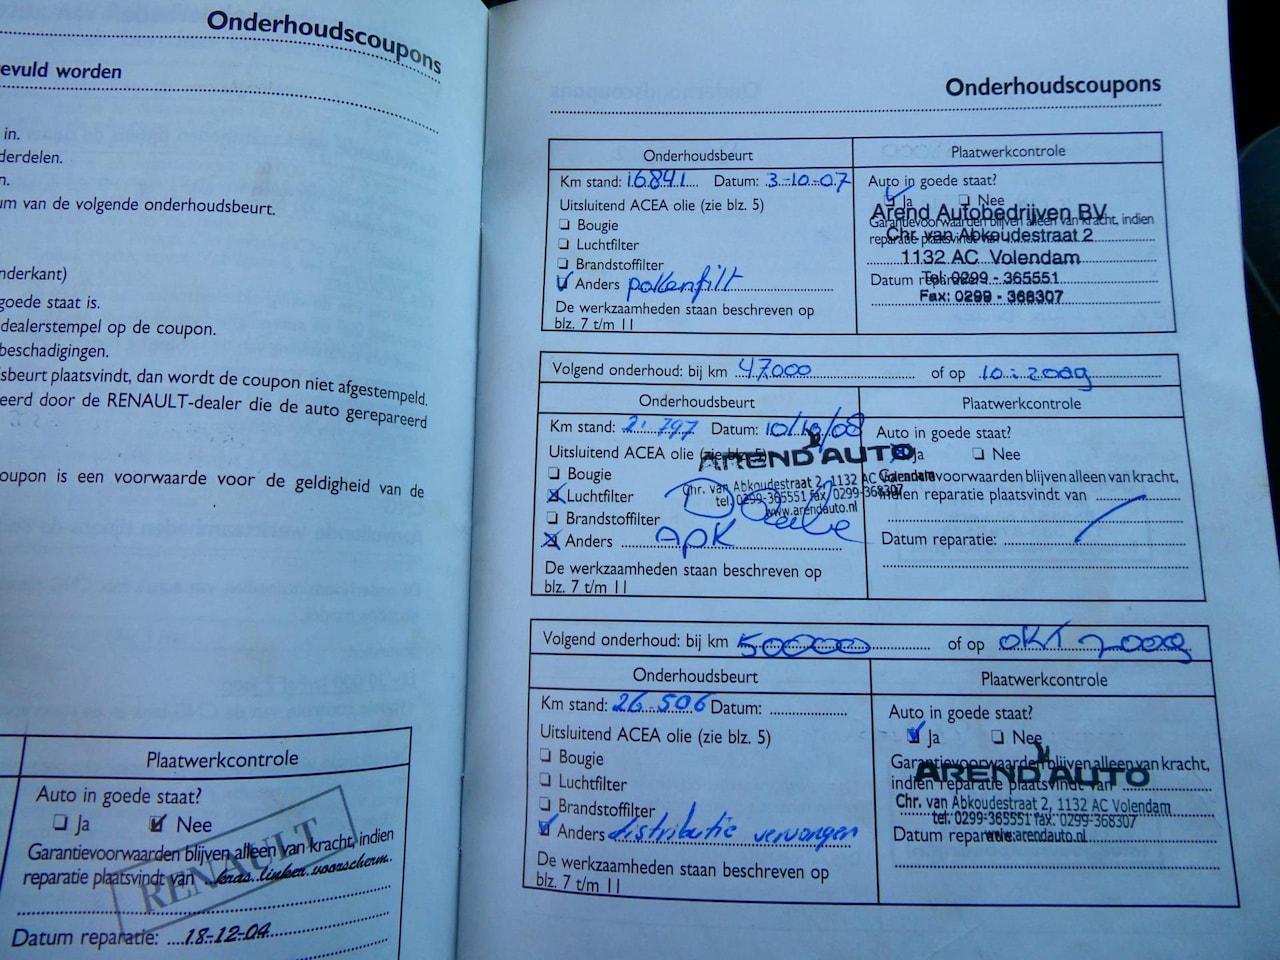 Onderhoudscoupons
evuld worden
in.
derdelen.
n.
um van de volgende onderhoudsbeurt.
nderkant)
goede staat is.
dealerstempel op de coupon.
beschadigingen.
sbeurt plaatsvindt, dan wordt de coupon niet afgestempeld.
eerd door de RENAULT-dealer die de auto gerepareerd
oupon is een voorwaarde voor de geldigheid van de
Plaatwerkcontrole
Auto in goede staat?
Ja Nee
Garantievoorwaarden blijven alleen van kracht, indien
reparatie plaatsvindt van kras linker voorscherm.
RENAULT
Datum reparatie: 18-12-04
Onderhoudscoupons
Onderhoudsbeurt
Km stand: 16841 Datum: 3-10-07
Uitsluitend ACEA olie (zie blz. 5)
Bougie
Luchtfilter
Brandstoffilter
Anders pollenfilt
De werkzaamheden staan beschreven op
blz. 7 t/m 11
Plaatwerkcontrole
Auto in goede staat?
Ja Nee
Arend Autobedrijven BV
Garantievoorwaarden blijven alleen van kracht, indien
Chr. van Abkoudestraat 2
reparatie plaatsvindt van
1132 AC Volendam
Datum reparatie:
Tel: 0299 - 365551
Fax: 0299 - 368307
Volgend onderhoud: bij km 47000 of op 10-2009
Onderhoudsbeurt
Km stand: 21.797 Datum: 10/10/08
Uitsluitend ACEA olie (zie blz. 5)
Bougie
Luchtfilter
Brandstoffilter
Anders APK
De werkzaamheden staan beschreven op
blz. 7 t/m 11
Plaatwerkcontrole
Auto in goede staat?
Ja Nee
AREND AUTO
Chr. van Abkoudestraat 2, 1132 AC Volendam
tel. 0299-365551 fax. 0299-368307
www.arendauto.nl
Garantievoorwaarden blijven alleen van kracht,
indien reparatie plaatsvindt van
Datum reparatie:
Volgend onderhoud: bij km 50000 of op OKT 2009
Onderhoudsbeurt
Km stand: 26.506 Datum:
Uitsluitend ACEA olie (zie blz. 5)
Bougie
Luchtfilter
Brandstoffilter
Anders distributie vervangen
De werkzaamheden staan beschreven op
blz. 7 t/m 11
Plaatwerkcontrole
Auto in goede staat?
Ja Nee
Garantievoorwaarden blijven alleen van kracht,
indien reparatie plaatsvindt van
AREND AUTO
Chr. van Abkoudestraat 2, 1132 AC Volendam
tel. 0299-365551 fax. 0299-368307
Datum reparatie:
www.arendauto.nl